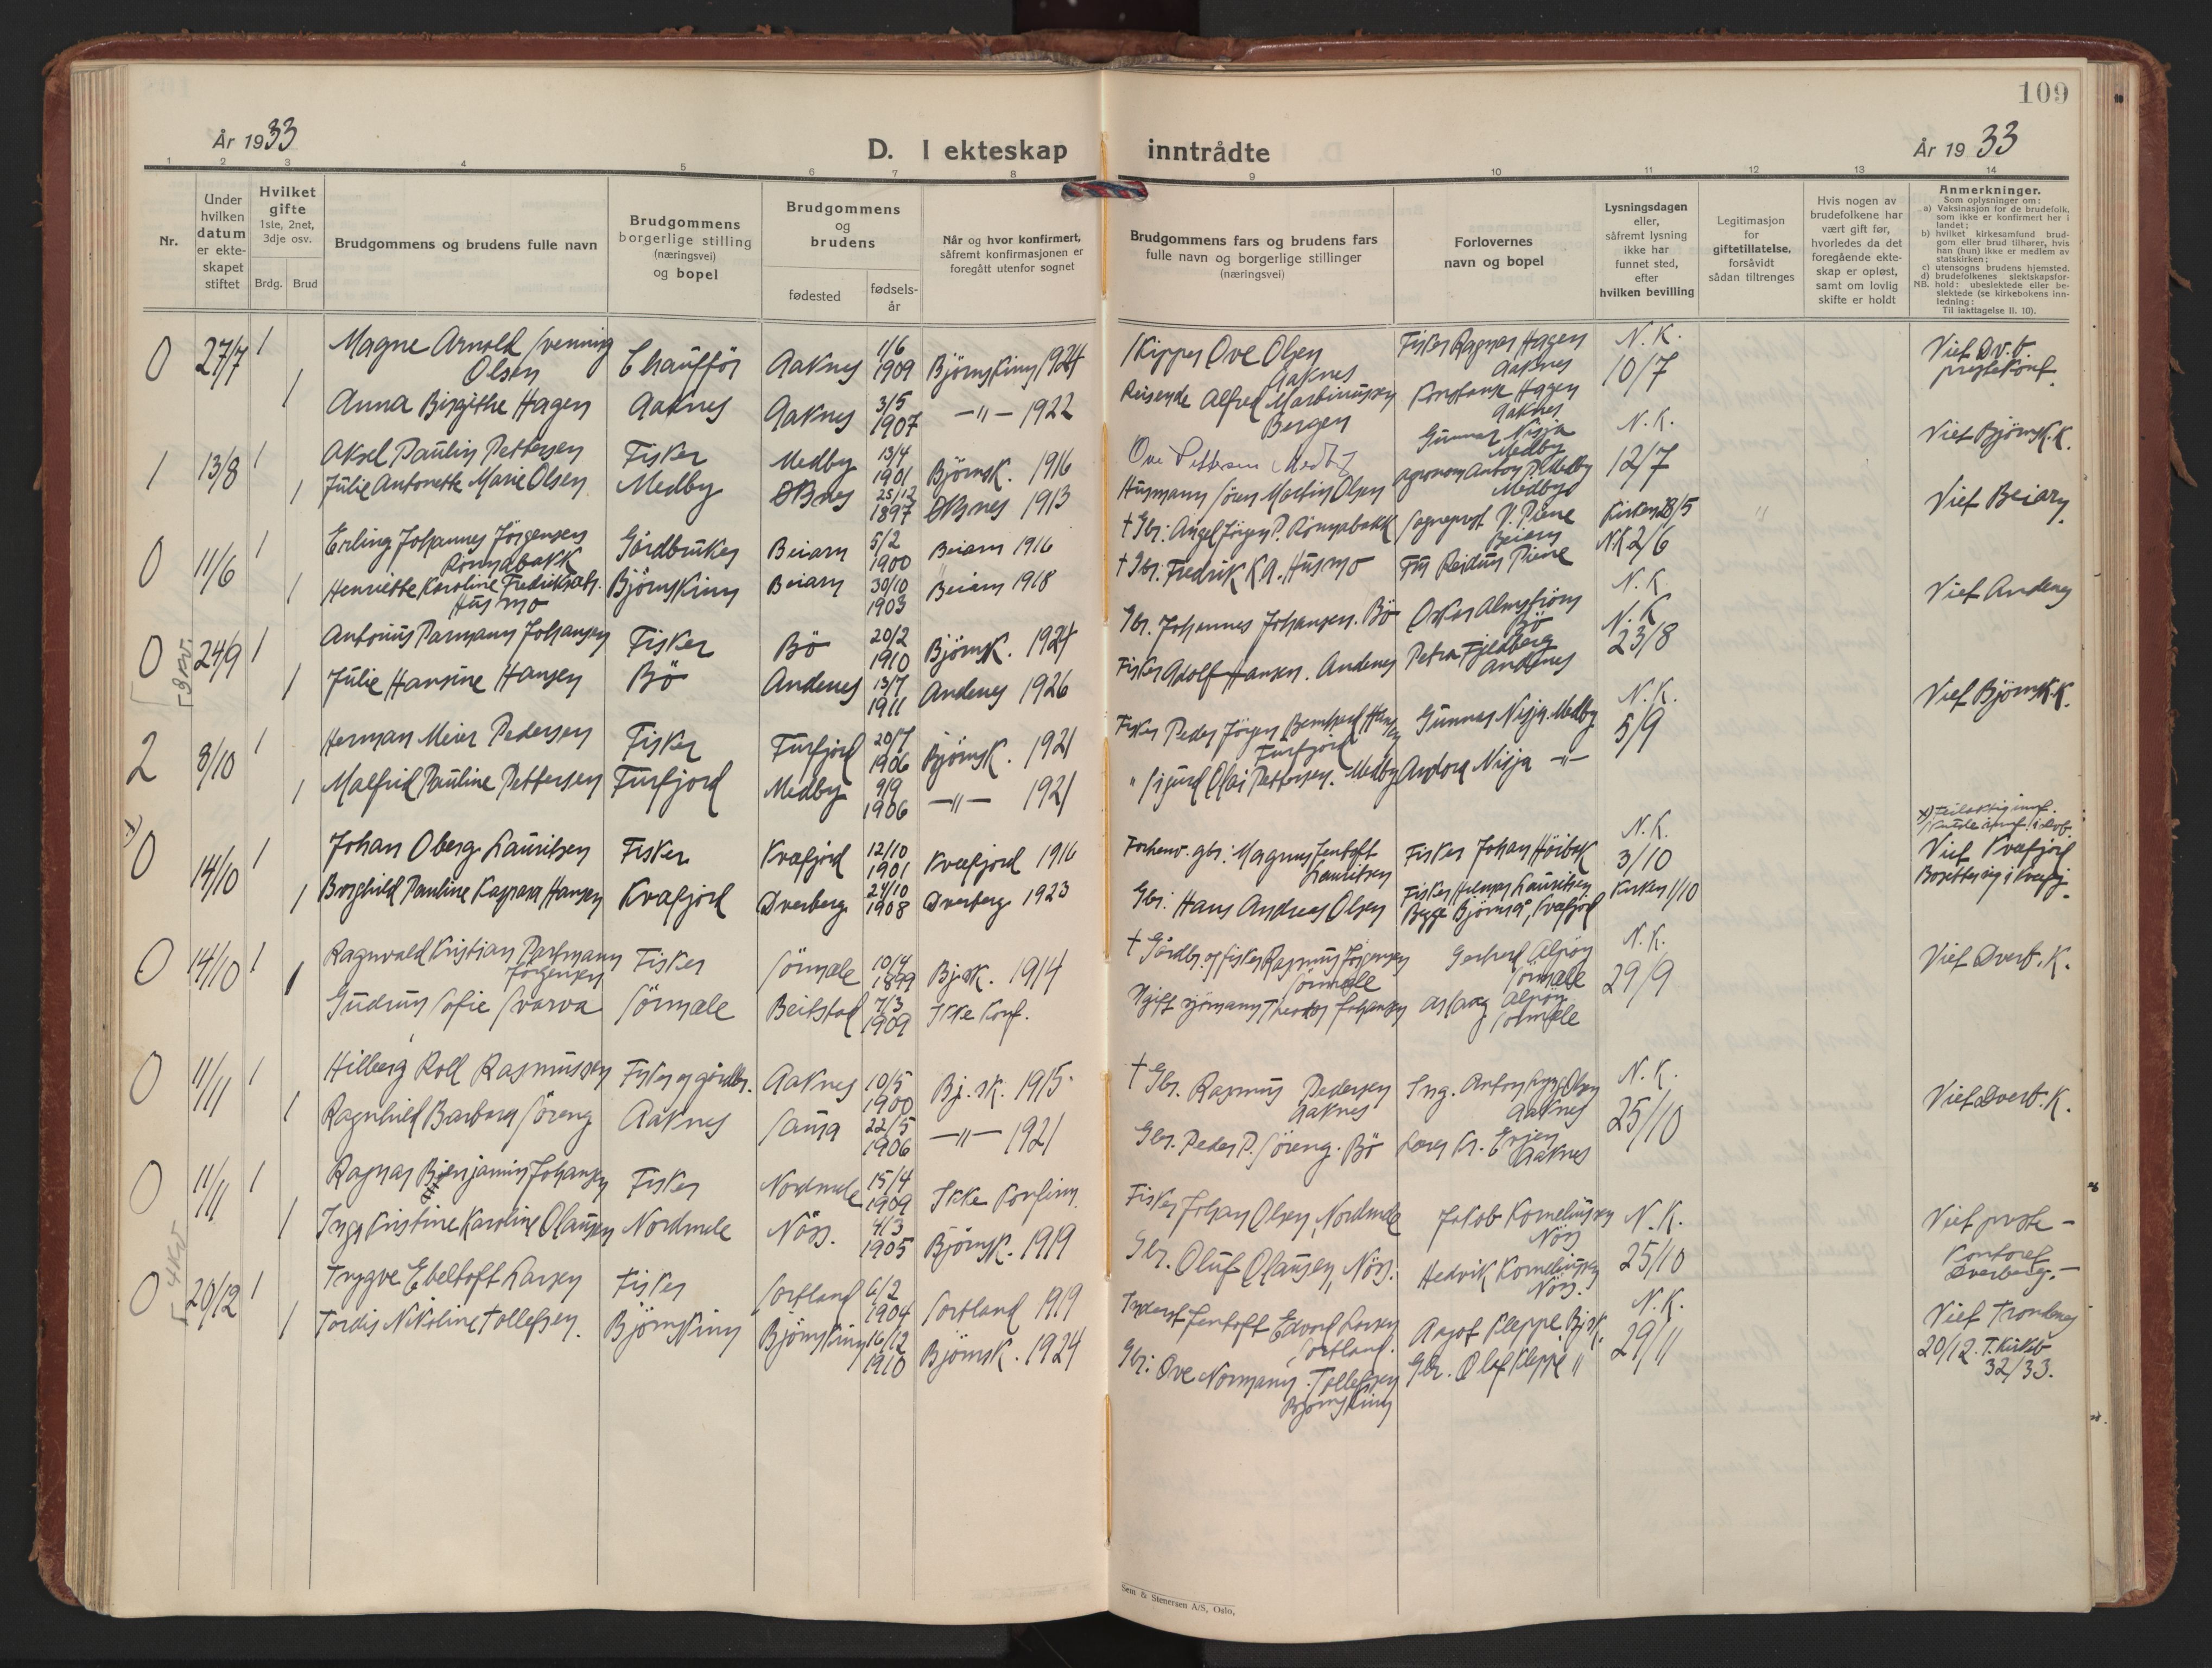 109
År 1933
D. I ekteskap inntrådte
År 1933
1 2 3 4 5 6 7 8 9 10 11 12 13 14
Nr.
Under hvilken datum er ekteskapet stiftet
Hvilket gifte 1ste, 2net, 3dje osv.
Brdg. Brud
Brudgommens og brudens fulle navn
Brudgommens borgerlige stilling (næringsvei) og bopel
Brudgommens og brudens
fødested
fødselsår
Når og hvor konfirmert, såfremt konfirmasjonen er foregått utenfor sognet
Brudgommens fars og brudens fars fulle navn og borgerlige stillinger (næringsvei)
Forlovernes navn og bopel
Lysningsdagen eller, såfremt lysning ikke har funnet sted, efter hvilken bevilling
Legitimasjon for giftetillatelse, forsåvidt sådan tiltrenges
Hvis nogen av brudefolkene har vært gift før, hvorledes da det foregående ekteskap er opløst, samt om lovlig skifte er holdt
Anmerkninger.
Som oplysninger om:
a) Vaksinasjon for de brudefolk, som ikke er konfirmert her i landet;
b) hvilket kirkesamfund brudgom eller brud tilhører, hvis han (hun) ikke er medlem av statskirken;
c) utensogns brudens hjemsted.
d) brudefolkenes slektskapsforhold: ubeslektede eller beslektede (se kirkebokens innledning:
NB.
Til iakttagelse II. 10).
0 27/7 1 Magne Arnold Svenning Olsen Chauffør Aaknes 1/6 1909 Björnskinn 1924 Skipper Ove Olsen Aaknes Fisker Ragnar Hagen Aaknes N.K. 10/7 Viet D.v.b. prestekont.
1 Anna Birgithe Hagen Aaknes Aaknes 3/5 1907 —"— 1922 Reisende Alfred Martinussen Bergen Konstanse Hagen Aaknes
1 13/8 1 Aksel Paulin Pettersen Fisker Medby 13/4 1901 Björnsk. 1916 Ove Pettersen Medby Gunnar Nisja Medby N.K. 12/7 Viet Björnsk.K.
1 Julie Antonette Marie Olsen Medby Öksnes 25/12 1897 Öksnes 1913 Husmann Sören Martin Olsen Agronom Anton P. Medby Medby
0 11/6 1 Erling Johannes Jörgensen Römmabakk Gårdbruker Beiarn 5/2 1900 Beiarn 1916 † Gbr. Angel Jörgen P. Römmabakk Sogneprest P. Piene Beiarn Kirken 28/5 Viet Beiarn.
1 Henriette Karoline Fredriksdtr. Husmo Björnskinn Beiarn 30/10 1903 Beiarn 1918 † Gbr. Fredrik K.A. Husmo Fru Reidun Piene NK 2/6
0 [3 kv. 24/9 1 Antonius Parmann Johansen Fisker Bö 20/2 1910 Björnsk. 1924 Gbr. Johannes Johansen. Bö Oskar Almestjörn Bö N.K. Viet Andenes
1 Julie Hansine Hansen Bö Andenes 13/7 1911 Andenes 1926 Fisker Adolf Hansen. Andenes Petra Fjeldberg Andenes N.K 23/8
2 8/10 1 Herman Meier Pedersen Fisker Furfjord 20/7 1906 Björnsk. 1921 Fisker Peder Jörgen Bernhard Hansen Furfjord Gunnar Nisja. Medby N.K. 5/9 Viet Björnsk.K.
1 Malfrid Pauline Pettersen Furfjord Medby 9/9 1906 —"— 1921 " Sigurd Olai Pettersen. Medby Andora Nisja —"—
x) 0 14/10 1 Johan Oberg Lauritsen Fisker Kvæfjord 12/10 1901 Kvæfjord 1916 Forhenv. gbr. Magnus Jentoft Lauritsen Fisker Johan Höibak N.K. 3/10 x) Feilaktig innf. Skulde innf. i Dvb. Viet Kvæfjord
1 Borghild Pauline Kaspara Hansen Kvæfjord Dverberg 24/10 1908 Dverberg 1923 Gbr. Hans Andreas Olsen Fisker Hilmar Lauritsen Bygge Björnrå, Kvæfjord Kirken 1/10 Bosetter sig i Kvæfj.
0 14/10 1 Ragnvald Kristian Parfmann Jörgensen Fisker Sörmæle 10/4 1899 Bj.sk. 1914 † Gårdbr. og fisker Rasmus Jörgensen Sörmæle Gerhard Alsjöy Sörmæle N.K. 29/9 Viet Dverb.K.
1 Gudrun Sofie Svarva Sörmæle Beitstad 7/3 1909 Ikke konf. Ugift sjömann Theodor Johansen Aslaug Alsjöy Sörmæle
0 11/11 1 Hilberg Roll Rasmussen Fisker og gårdbr. Aaknes 10/5 1900 Bj.sk. 1915 † Gbr. Rasmus Pedersen Aaknes Ing. Anton Olsen Aaknes N.K. 25/10 Viet Dverb.K.
1 Ragnhild Barbara Söreng Aaknes Saura 22/5 1906 —"— 1921 Gbr. Peder P. Söreng. Bö Lars Kr. Aaknes
0 11/11 1 Ragnar Benjamin Johansen Fisker Nordmele 15/4 1909 Ikke konfirm. Fisker Johan Olsen, Nordmele Jakob Korneliussen Nöss N.K. 25/10 Viet preste-kontoret Dverberg.—
1 Inga Kristine Karoline Olaussen Nordmele Nöss. 4/3 1905 Björnsk. 1919 Gbr. Oluf Olaussen, Nöss. Hedvik Korneliussen Nöss.
0 [4 kv. 20/12 1 Trygve Ebeltoft Larsen Fisker Sortland 6/2 1904 Sortland 1919 Inderst Jentoft Edvard Larsen Sortland. Aagot Kleppe. Bj.sk. N.K. 29/11 Viet Trondenes 20/12. T. Kirkeb 32/33.
1 Tordis Nikoline Tollefsen. Björnskinn Björnskinn 16/12 1910 Björnsk. 1924 Gbr. Ove Normann Tollefsen Björnskinn Gbr. Olaf Kleppe "
Sem & Stenersen A/S, Oslo,